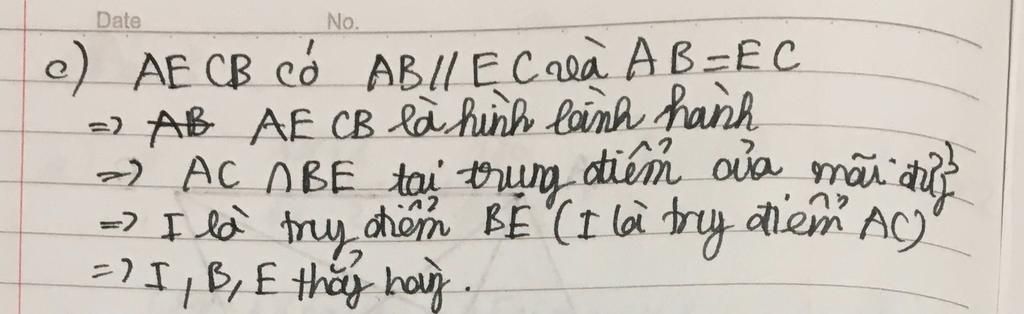 Date No.
c) AECB có AB // EC và AB = EC
=> AB AECB là hình bình hành
=> AC ∩ BE tại trung điểm của mỗi đg
=> I là trg điểm BE (I là trg điểm AC)
=> I, B, E thẳg hàg.